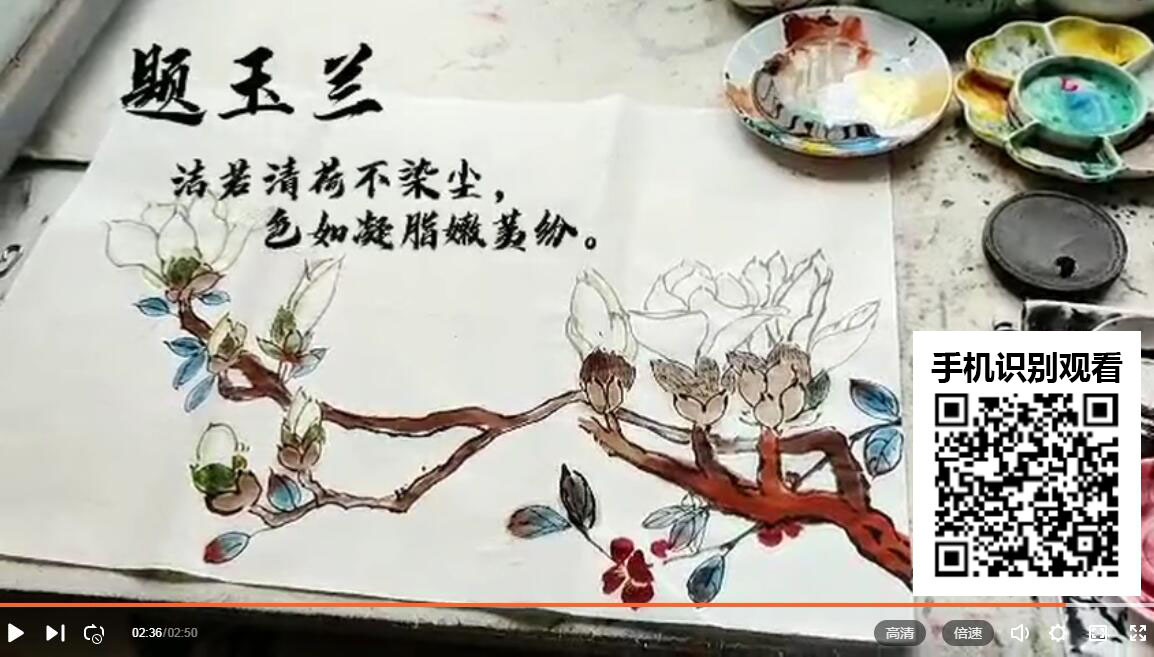 题玉兰
洁若清荷不染尘，
色如凝脂嫩荑纷。
手机识别观看
02:36/02:50
高清
倍速